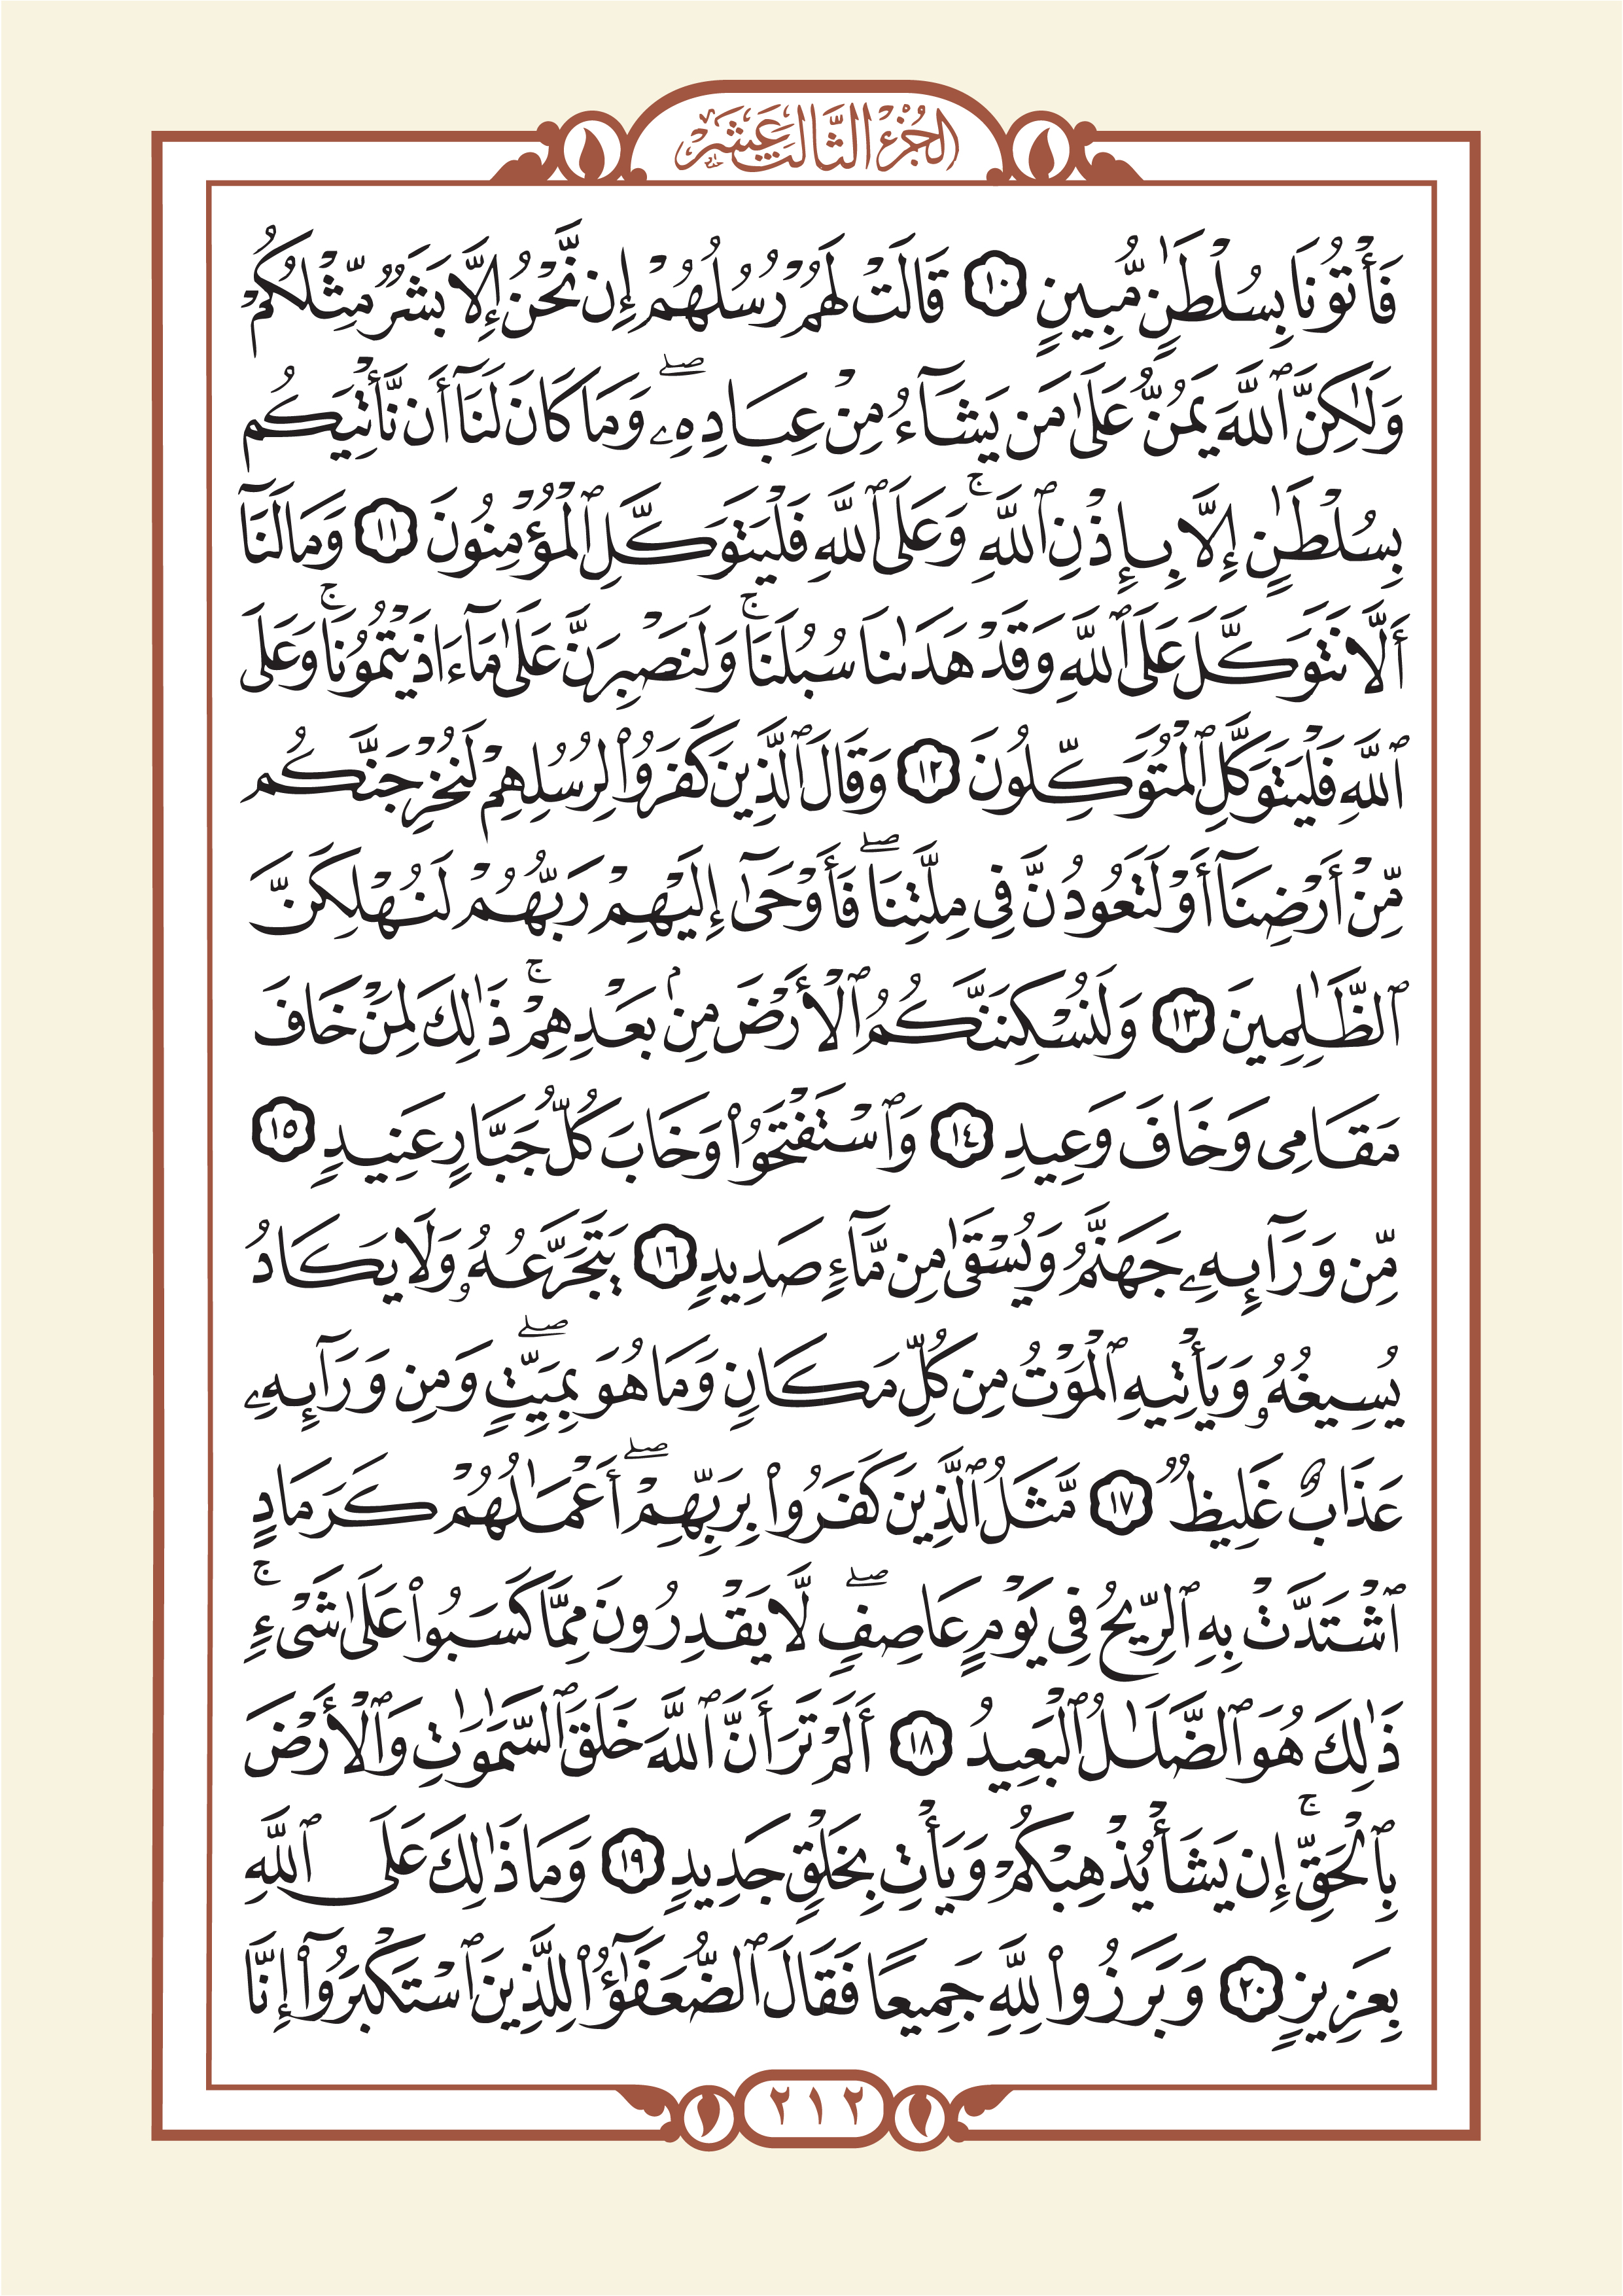 الجُزْءُ الثَّالِثَ عَشَرَ
فَأْتُونَا بِسُلْطَٰنٍ مُّبِينٍ ١٠ قَالَتْ لَهُمْ رُسُلُهُمْ إِن نَّحْنُ إِلَّا بَشَرٌ مِّثْلُكُمْ
وَلَٰكِنَّ ٱللَّهَ يَمُنُّ عَلَىٰ مَن يَشَآءُ مِنْ عِبَادِهِۦۖ وَمَا كَانَ لَنَآ أَن نَّأْتِيَكُم
بِسُلْطَٰنٍ إِلَّا بِإِذْنِ ٱللَّهِۚ وَعَلَى ٱللَّهِ فَلْيَتَوَكَّلِ ٱلْمُؤْمِنُونَ ١١ وَمَا لَنَآ
أَلَّا نَتَوَكَّلَ عَلَى ٱللَّهِ وَقَدْ هَدَىٰنَا سُبُلَنَاۚ وَلَنَصْبِرَنَّ عَلَىٰ مَآ ءَاذَيْتُمُونَاۚ وَعَلَى
ٱللَّهِ فَلْيَتَوَكَّلِ ٱلْمُتَوَكِّلُونَ ١٢ وَقَالَ ٱلَّذِينَ كَفَرُوا۟ لِرُسُلِهِمْ لَنُخْرِجَنَّكُم
مِّنْ أَرْضِنَآ أَوْ لَتَعُودُنَّ فِى مِلَّتِنَاۖ فَأَوْحَىٰٓ إِلَيْهِمْ رَبُّهُمْ لَنُهْلِكَنَّ
ٱلظَّٰلِمِينَ ١٣ وَلَنُسْكِنَنَّكُمُ ٱلْأَرْضَ مِنۢ بَعْدِهِمْۚ ذَٰلِكَ لِمَنْ خَافَ
مَقَامِى وَخَافَ وَعِيدِ ١٤ وَٱسْتَفْتَحُوا۟ وَخَابَ كُلُّ جَبَّارٍ عَنِيدٍ ١٥
مِّن وَرَآئِهِۦ جَهَنَّمُ وَيُسْقَىٰ مِن مَّآءٍ صَدِيدٍ ١٦ يَتَجَرَّعُهُۥ وَلَا يَكَادُ
يُسِيغُهُۥ وَيَأْتِيهِ ٱلْمَوْتُ مِن كُلِّ مَكَانٍ وَمَا هُوَ بِمَيِّتٍۖ وَمِن وَرَآئِهِۦ
عَذَابٌ غَلِيظٌ ١٧ مَّثَلُ ٱلَّذِينَ كَفَرُوا۟ بِرَبِّهِمْۖ أَعْمَٰلُهُمْ كَرَمَادٍ
ٱشْتَدَّتْ بِهِ ٱلرِّيحُ فِى يَوْمٍ عَاصِفٍۖ لَّا يَقْدِرُونَ مِمَّا كَسَبُوا۟ عَلَىٰ شَىْءٍۚ
ذَٰلِكَ هُوَ ٱلضَّلَٰلُ ٱلْبَعِيدُ ١٨ أَلَمْ تَرَ أَنَّ ٱللَّهَ خَلَقَ ٱلسَّمَٰوَٰتِ وَٱلْأَرْضَ
بِٱلْحَقِّۚ إِن يَشَأْ يُذْهِبْكُمْ وَيَأْتِ بِخَلْقٍ جَدِيدٍ ١٩ وَمَا ذَٰلِكَ عَلَى ٱللَّهِ
بِعَزِيزٍ ٢٠ وَبَرَزُوا۟ لِلَّهِ جَمِيعًا فَقَالَ ٱلضُّعَفَٰٓؤُا۟ لِلَّذِينَ ٱسْتَكْبَرُوٓا۟ إِنَّا
٢١٢